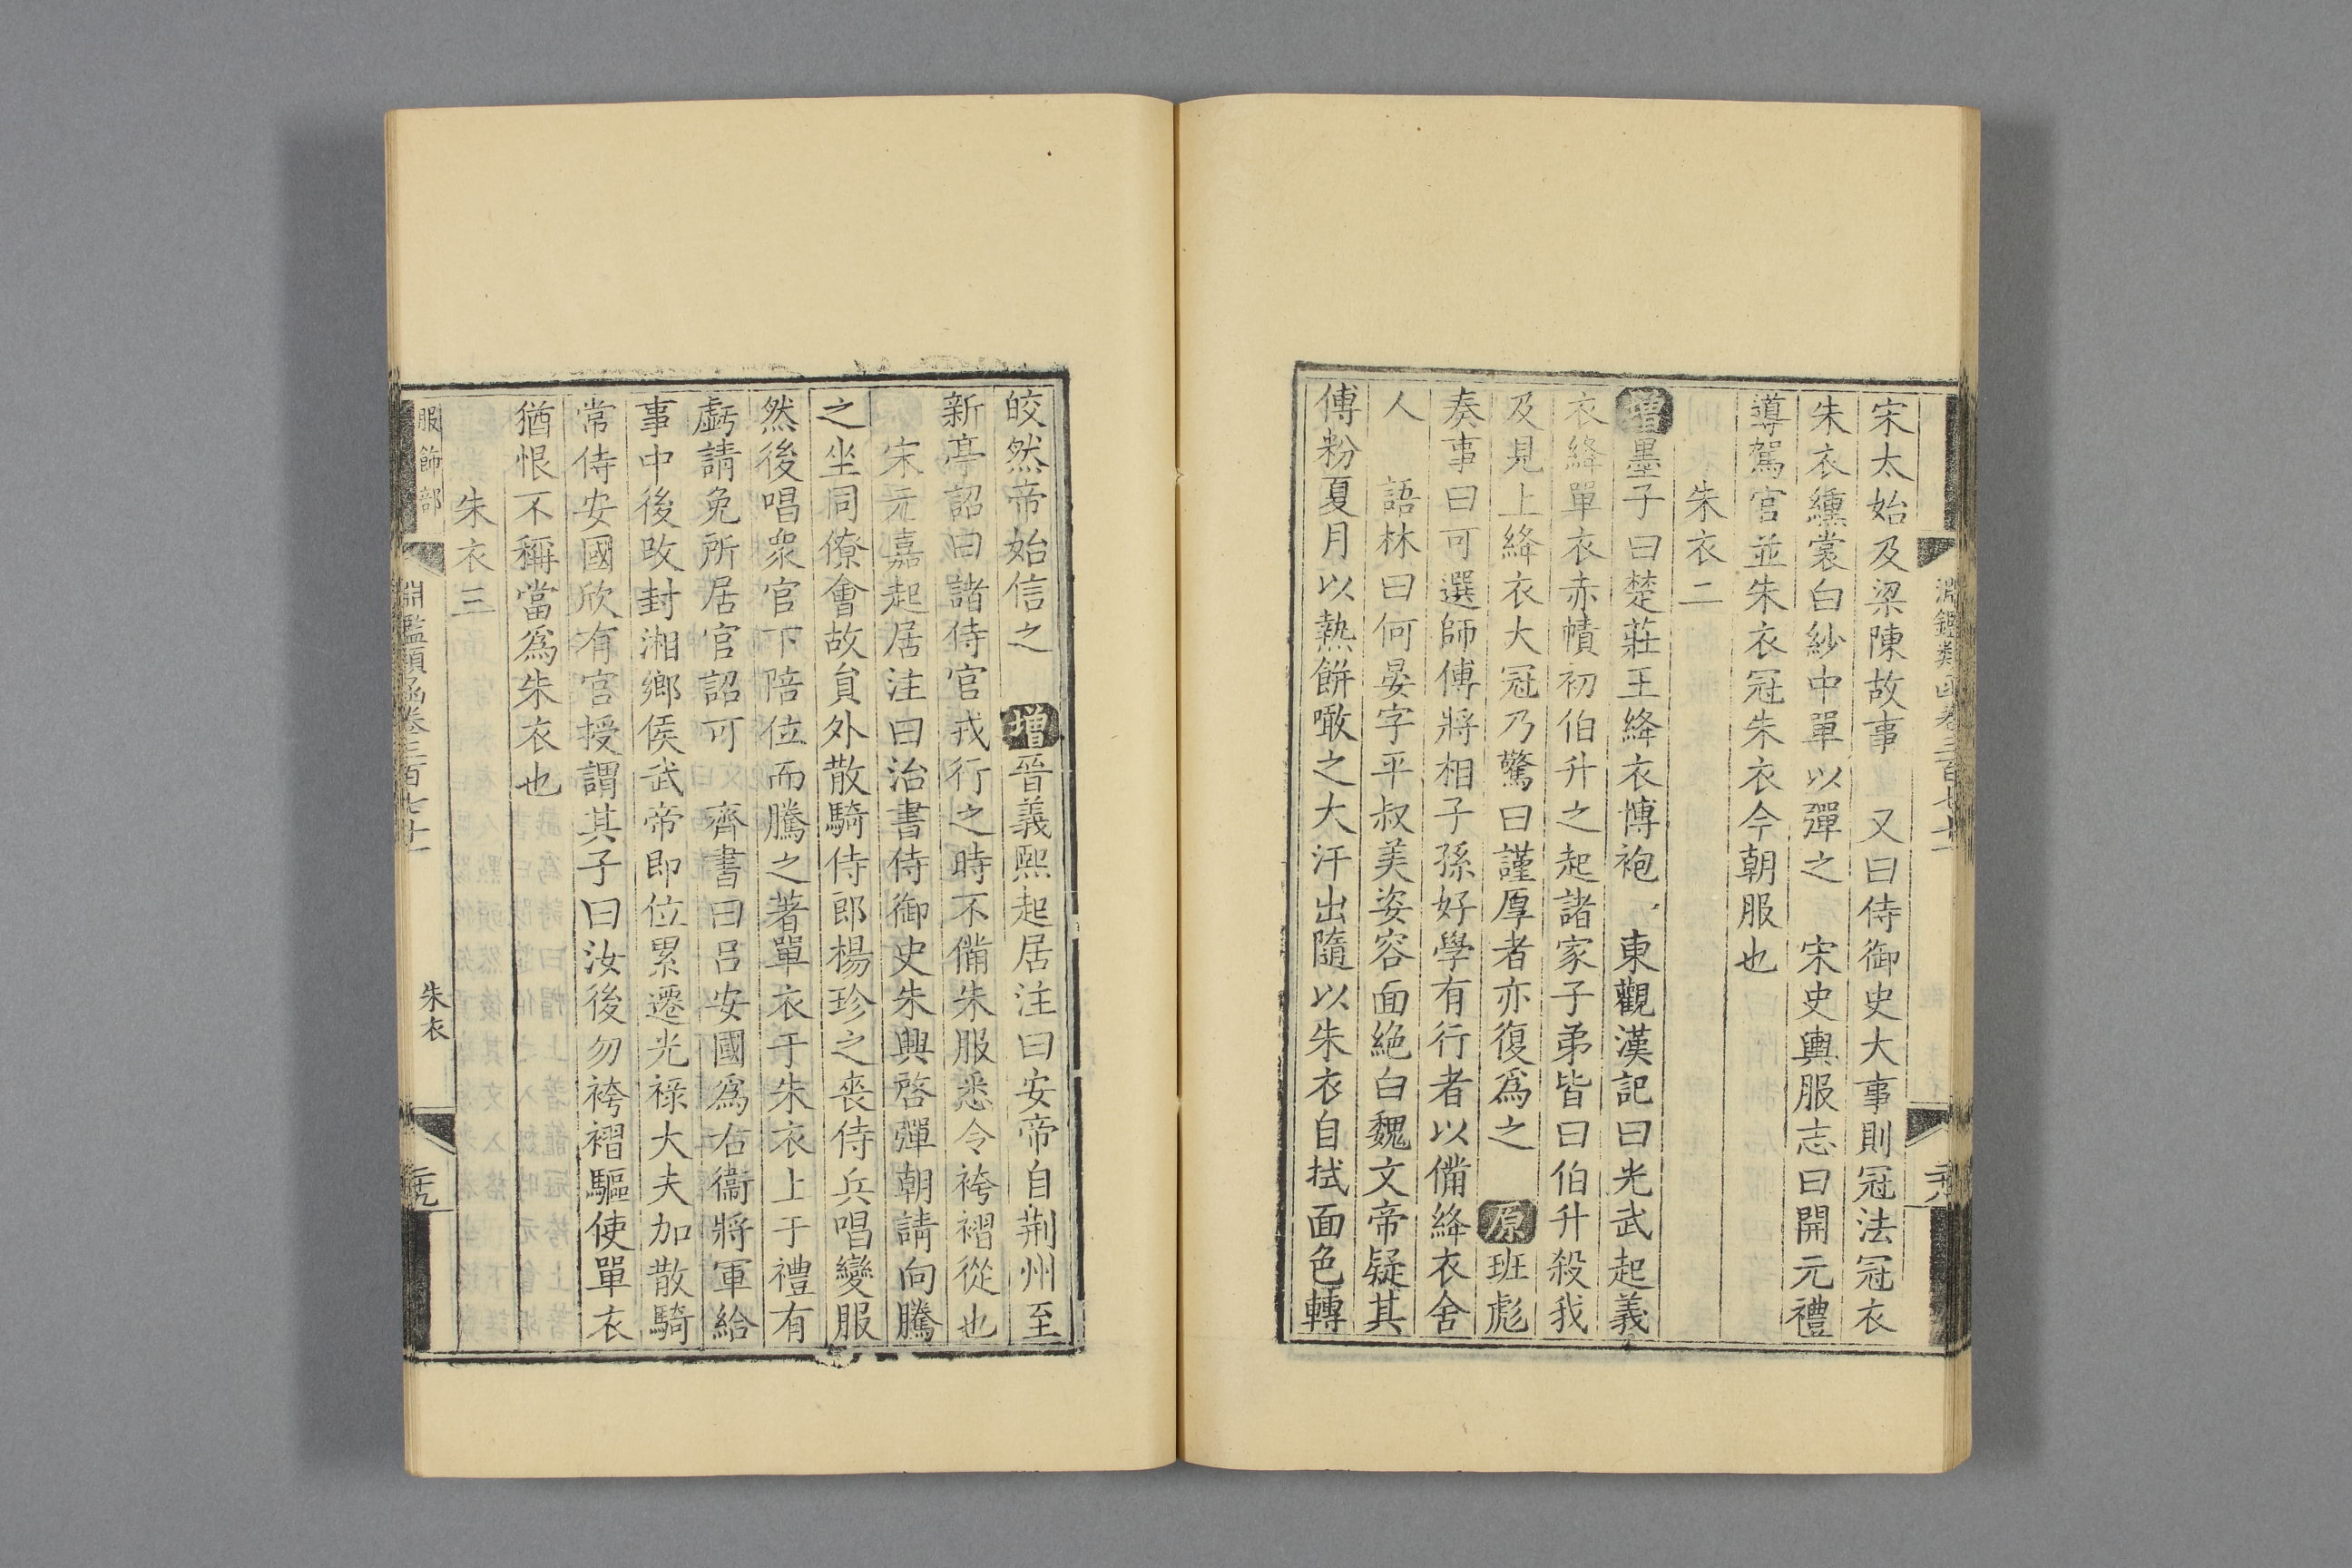 淵鑑類函卷三百七十一
宋太始及梁陳故事 又曰侍御史大事則冠法冠衣
朱衣纁裳白紗中單以彈之 宋史輿服志曰開元禮
導駕官並朱衣冠朱衣今朝服也
朱衣二
增墨子曰楚莊王絳衣博袍 東觀漢記曰光武起義
衣絳單衣赤幘初伯升之起諸家子弟皆曰伯升殺我
及見上絳衣大冠乃驚曰謹厚者亦復爲之 原班彪
奏事曰可選師傅將相子孫好學有行者以備絳衣舍
人 語林曰何晏字平叔美姿容面絶白魏文帝疑其
傅粉夏月以熱餅噉之大汗出隨以朱衣自拭面色轉
皎然帝始信之 增晉義熙起居注曰安帝自荆州至
新亭詔曰諸侍官戎行之時不備朱服悉令袴褶從也
宋元嘉起居注曰治書侍御史朱興啓彈朝請向騰
之坐同僚會故貟外散騎侍郎楊珍之喪侍兵唱變服
然後唱衆官下陪位而騰之著單衣于朱衣上于禮有
虧請免所居官詔可 齊書曰吕安國爲右衞將軍給
事中後改封湘鄉侯武帝即位累遷光祿大夫加散騎
常侍安國欣有宫授謂其子曰汝後勿袴褶驅使單衣
猶恨不稱當爲朱衣也
朱衣三
服飾部
淵鑑類函卷三百七十一
朱衣